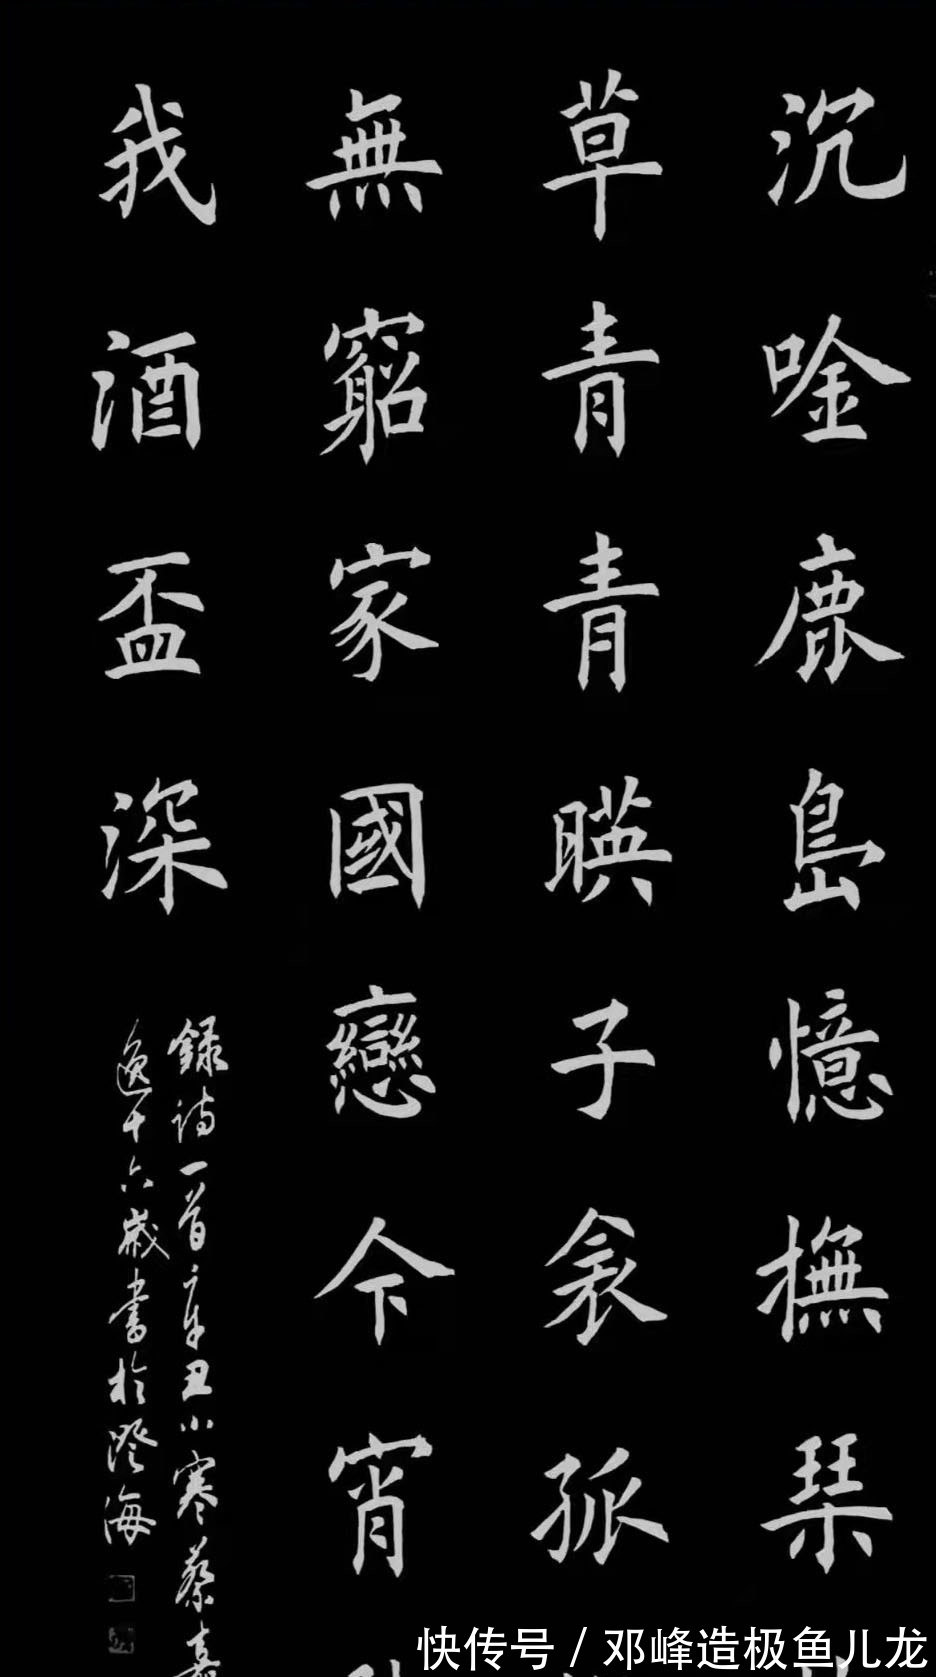 沉唫鹿島憶撫琹
草青青暎子衾孤
無窮家國戀今宵
我酒盃深
錄詩一首辛丑小寒蔡
逸十六歲書於澄海
快传号 / 邓峰造极鱼儿龙